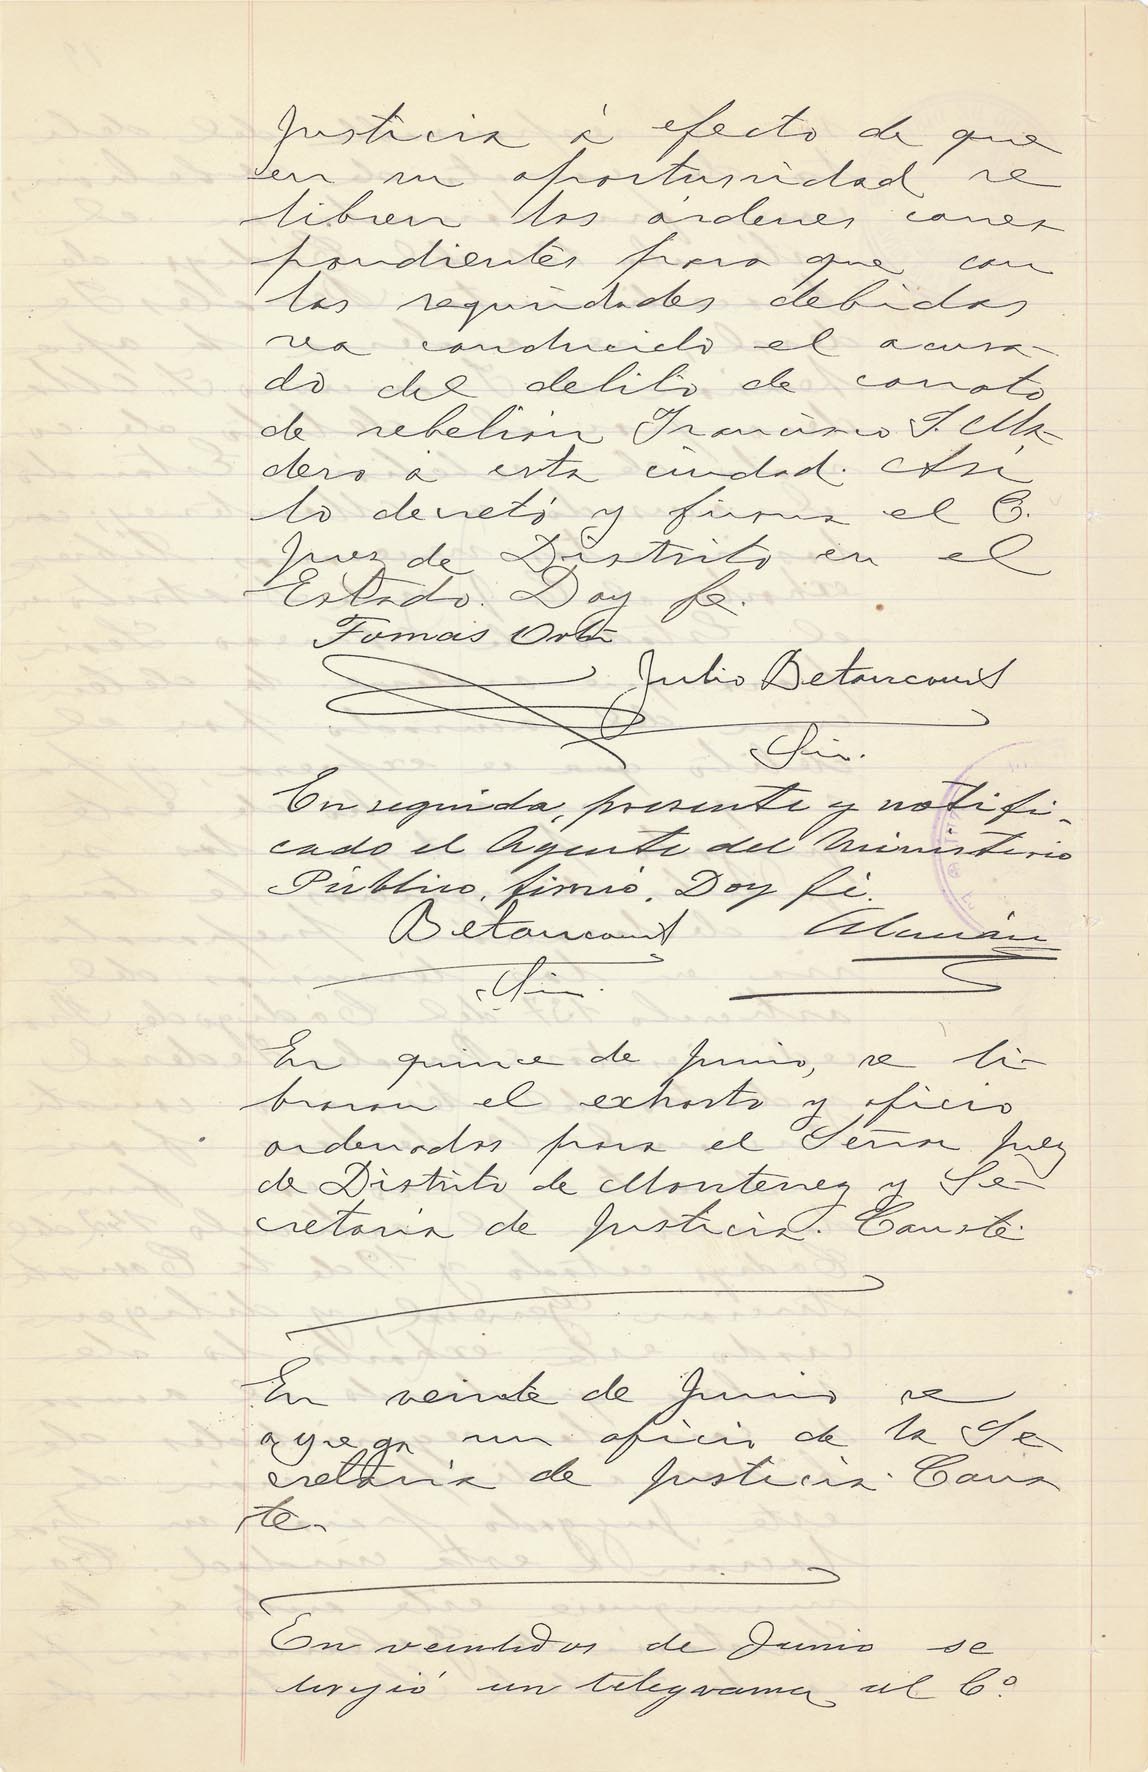 Justicia á efecto de que
en su oportunidad se
libren las órdenes corres
pondientes para que con
las seguridades debidas
sea conducido el acusa-
do del delito de conato
de rebelión Francisco I. Ma-
dero á esta ciudad. Así
lo decretó y firma el C.
Juez de Distrito en el
Estado. Doy fe.
Tomas Ortiz
Julio Betancourt
Srio.
En seguida, presente y notifi-
cado el Agente del Ministerio
Público, firmó. Doy fé.
Betancourt Alemán
Srio.
En quince de Junio, se li-
braron el exhorto y oficio
ordenados para el Señor Juez
de Distrito de Monterrey y Se-
cretaría de Justicia. Conste.
En veinte de Junio se
agrega un oficio de la Se
cretaría de Justicia. Cons
te.
En veintidos de Junio se
dirijió un telegrama al C.º